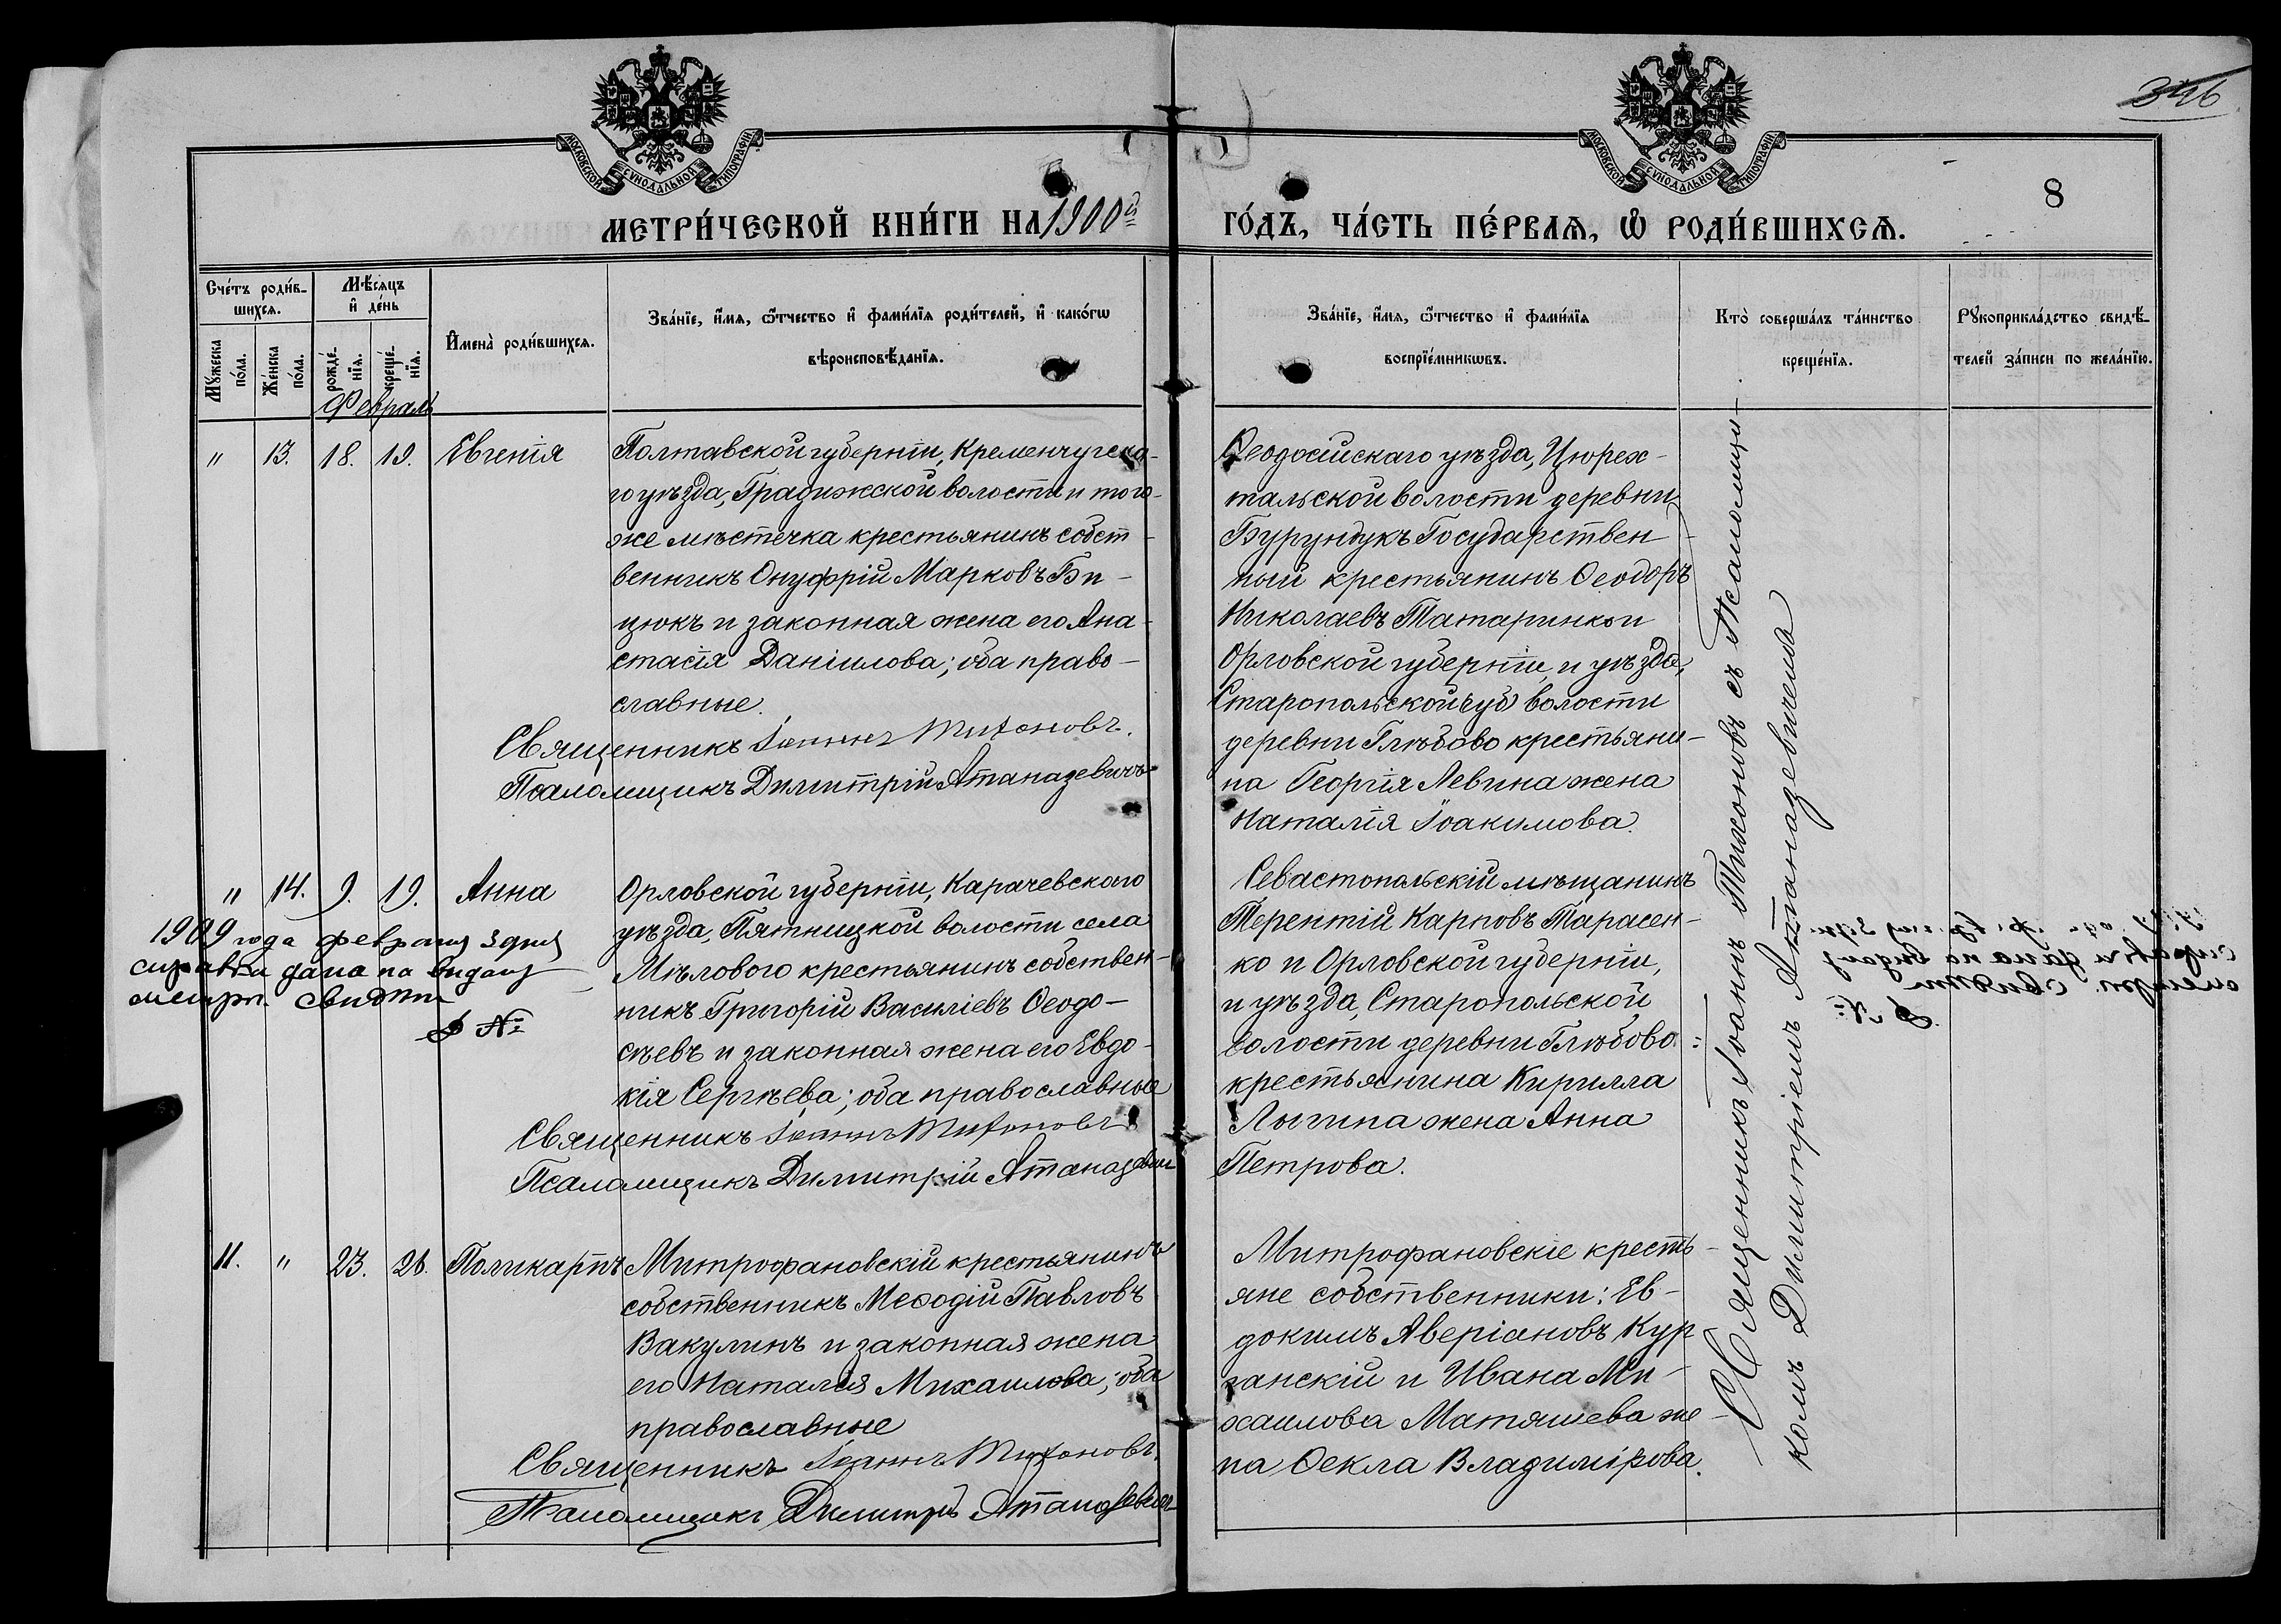 346
8
МОСКОВСКОЙ СѴНОДАЛЬНОЙ ТИПОГРАФІИ
МОСКОВСКОЙ СѴНОДАЛЬНОЙ ТИПОГРАФІИ
МЕТРИ́ЧЕСКОЙ КНИ́ГИ НА 1900й ГО́ДЪ, ЧА́СТЬ ПЕ́РВАѦ, Ѽ РОДИ́ВШИХСѦ.
Сче́тъ роди́в-
шихсѧ.
Мꙋ́жеска
по́ла.
Же́нска
по́ла.
Мѣ́сѧцъ
и҆ де́нь
рожде́-
нїѧ.
креще́-
нїѧ.
И҆мена̀ роди́вшихсѧ.
Зва́нїе, и҆́мѧ, ѻ҆́тчество и҆ фами́лїѧ роди́телей, и҆ како́гѡ
вѣроисповѣ́данїѧ.
Зва́нїе, и҆́мѧ, ѻ҆́тчество и҆ фами́лїѧ
воспрїе́мникѡвъ.
Кто̀ соверша́лъ та́инство
креще́нїѧ.
Рꙋкоприкла́дство свидѣ́-
телей за́писи по жела́нїю.
Февраль
" 13. 18. 19. Евгенія
Полтавской губерніи, Кременчугска-
го уѣзда, Градижской волости и того-
же мѣстечка крестьянинъ собст-
венникъ Онуфрій Марковъ Би-
цюкъ и законная жена его Ана-
стасія Даніилова; оба право-
славные.
Священникъ Іоаннъ Тихоновъ.
Псаломщикъ Димитрій Атаназевичъ
Ѳеодосійскаго уѣзда, Цюрех-
тальской волости деревни
Бурундукъ Государствен-
ный крестьянинъ Ѳеодоръ
Николаевъ Татаринъ и
Орловской губерніи, и уѣзда,
Старопольской волости
деревни Глѣбово крестьяни-
на Георгія Левина жена
Наталія Іоакимова.
" 14. 9. 19. Анна
Орловской губерніи, Карачевскаго
уѣзда, Пятницкой волости села
Мѣлового крестьянинъ собствен-
никъ Григорій Василіевъ Ѳеодо-
сѣевъ и законная жена его Евдо-
кія Сергѣева; оба православные
Священникъ Іоаннъ Тихоновъ
Псаломщикъ Димитрій Атаназевич
1909 года февраля 3 дня
справка дана на выдачу
метрич. свидѣт
№
Севастопольскій мѣщанинъ
Терентій Карповъ Тарасен-
ко и Орловской губерніи,
и уѣзда, Старопольской
волости деревни Глѣбово
крестьянина Кирилла
Лыгина жена Анна
Петрова.
11. " 23. 26. Поликарпъ
Митрофановскій крестьянинъ
собственникъ Меѳодій Павловъ
Вакулинъ и законная жена
его Наталія Михаилова; оба
православные
Священникъ Іоаннъ Тихоновъ.
Псаломщикъ Димитрій Атаназевичъ
Митрофановскіе кресть-
яне собственники: Ев-
докимъ Аверіановъ Кур-
ганскій и Ивана Ми-
хаилова Матяшева же-
на Ѳекла Владимірова.
Священникъ Іоаннъ Тихоновъ съ Псаломщи-
комъ Димитріемъ Атаназевичемъ